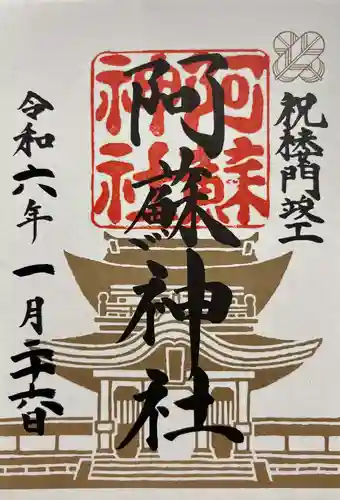 祝楼門竣工
阿蘇神社
阿蘇神社
令和六年一月二十六日